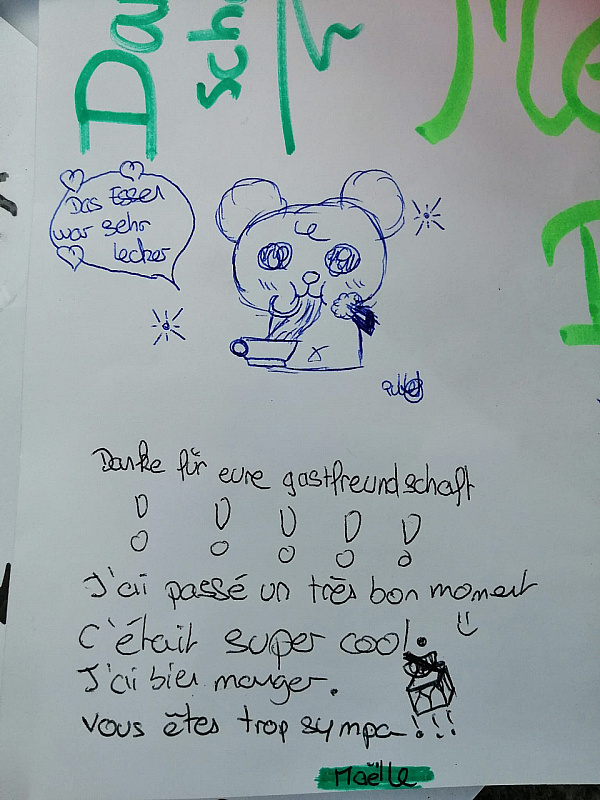 Das Essen
war sehr
lecker
Danke für eure gastfreundschaft
J'ai passé un très bon moment
C'était super cool.
J'ai bien manger.
Vous êtes trop sympa !!!
Maëlle